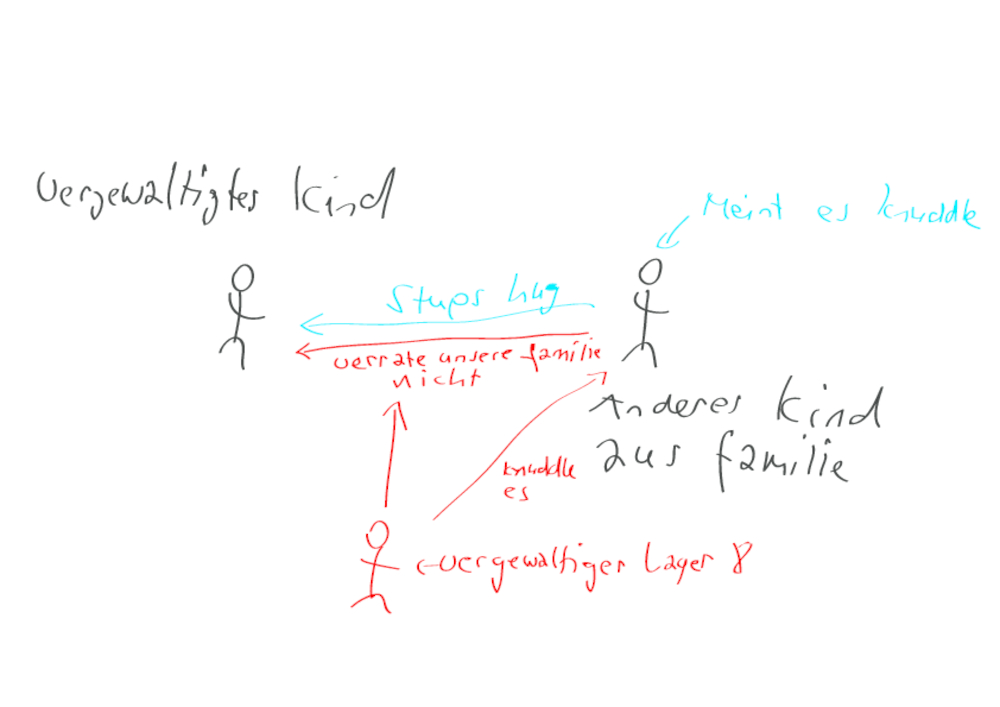 Vergewaltigtes Kind
Meint es knuddle
Stups hug
verrate unsere familie
nicht
Anderes Kind
aus familie
knuddle
es
vergewaltiger Layer 8